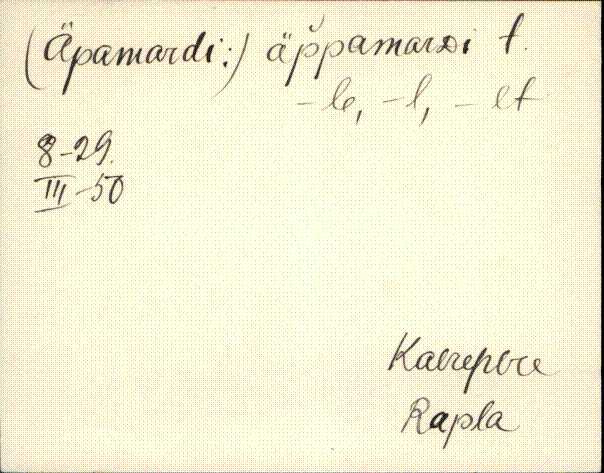 (Äpamardi:) äp̆pamarDi t.
-le, -l, -lt
8-29.
III-50
Rapla